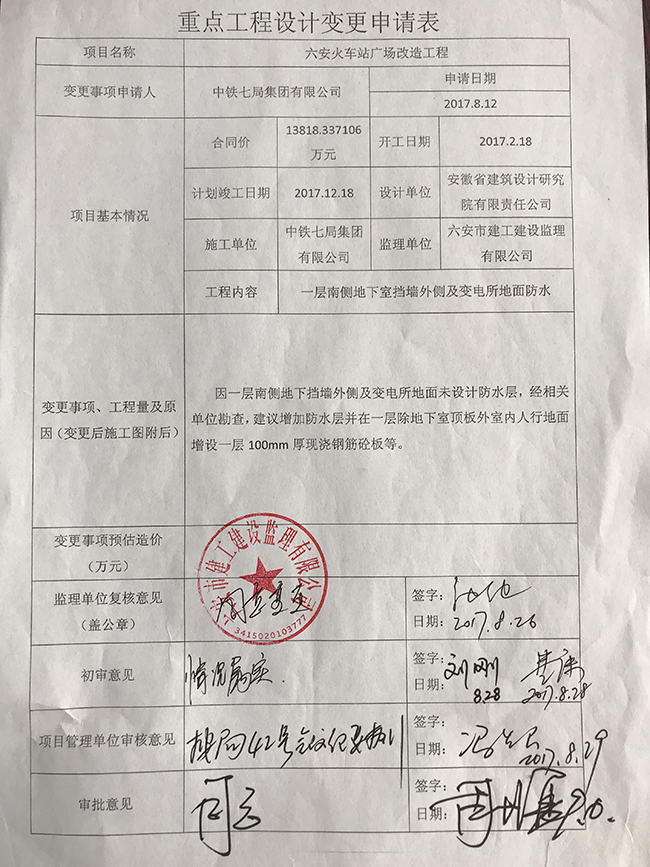 重点工程设计变更申请表
项目名称
六安火车站广场改造工程
变更事项申请人
中铁七局集团有限公司
申请日期
2017.8.12
项目基本情况
合同价
13818.337106
万元
开工日期
2017.2.18
计划竣工日期
2017.12.18
设计单位
安徽省建筑设计研究
院有限责任公司
施工单位
中铁七局集团
有限公司
监理单位
六安市建工建设监理
有限公司
工程内容
一层南侧地下室挡墙外侧及变电所地面防水
变更事项、工程量及原
因（变更后施工图附后）
因一层南侧地下挡墙外侧及变电所地面未设计防水层，经相关
单位勘查，建议增加防水层并在一层除地下室顶板外室内人行地面
增设一层 100mm 厚现浇钢筋砼板等。
变更事项预估造价
（万元）
市建工建设监理有限公司
3415020103777
监理单位复核意见
（盖公章）
同意变更
签字：
日期：2017.8.26
初审意见
情况属实.
签字：刘刚
日期：8.28 2017.8.28
项目管理单位审核意见
按局42号会议纪要执行
签字：
日期：2017.8.29
审批意见
同意
签字：
日期：